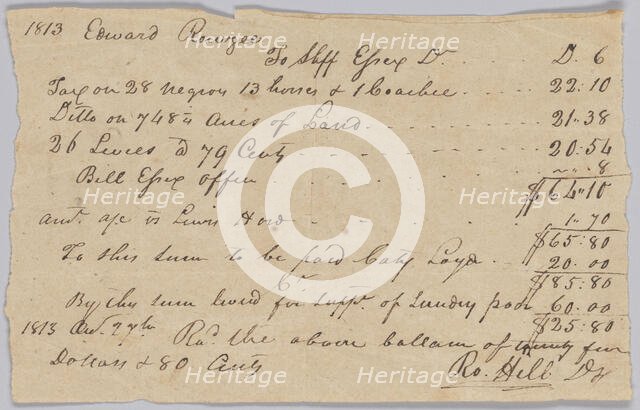 1813 Edward Rouzee
To Shff Essex Dr. D. C
Tax on 28 negroes 13 horses & 1 Coachee 22.10
Ditto on 748¼ Acres of Land 21.38
26 Levies @ 79 Cents 20.54
Bell Essex 8
$64.10
Lewis Hord 1.70
$65.80
To this sum to be paid Caty Loyd 20.00
Cr. $85.80
By this sum for suppt. of Sundry poor 60.00
$25.80
1813 27th Recd. the above ballance of twenty five
Dollars & 80 Cents
Ro. Hill DS
Heritage
Heritage
Heritage
Heritage
Heritage
Heritage
Heritage
Heritage
C